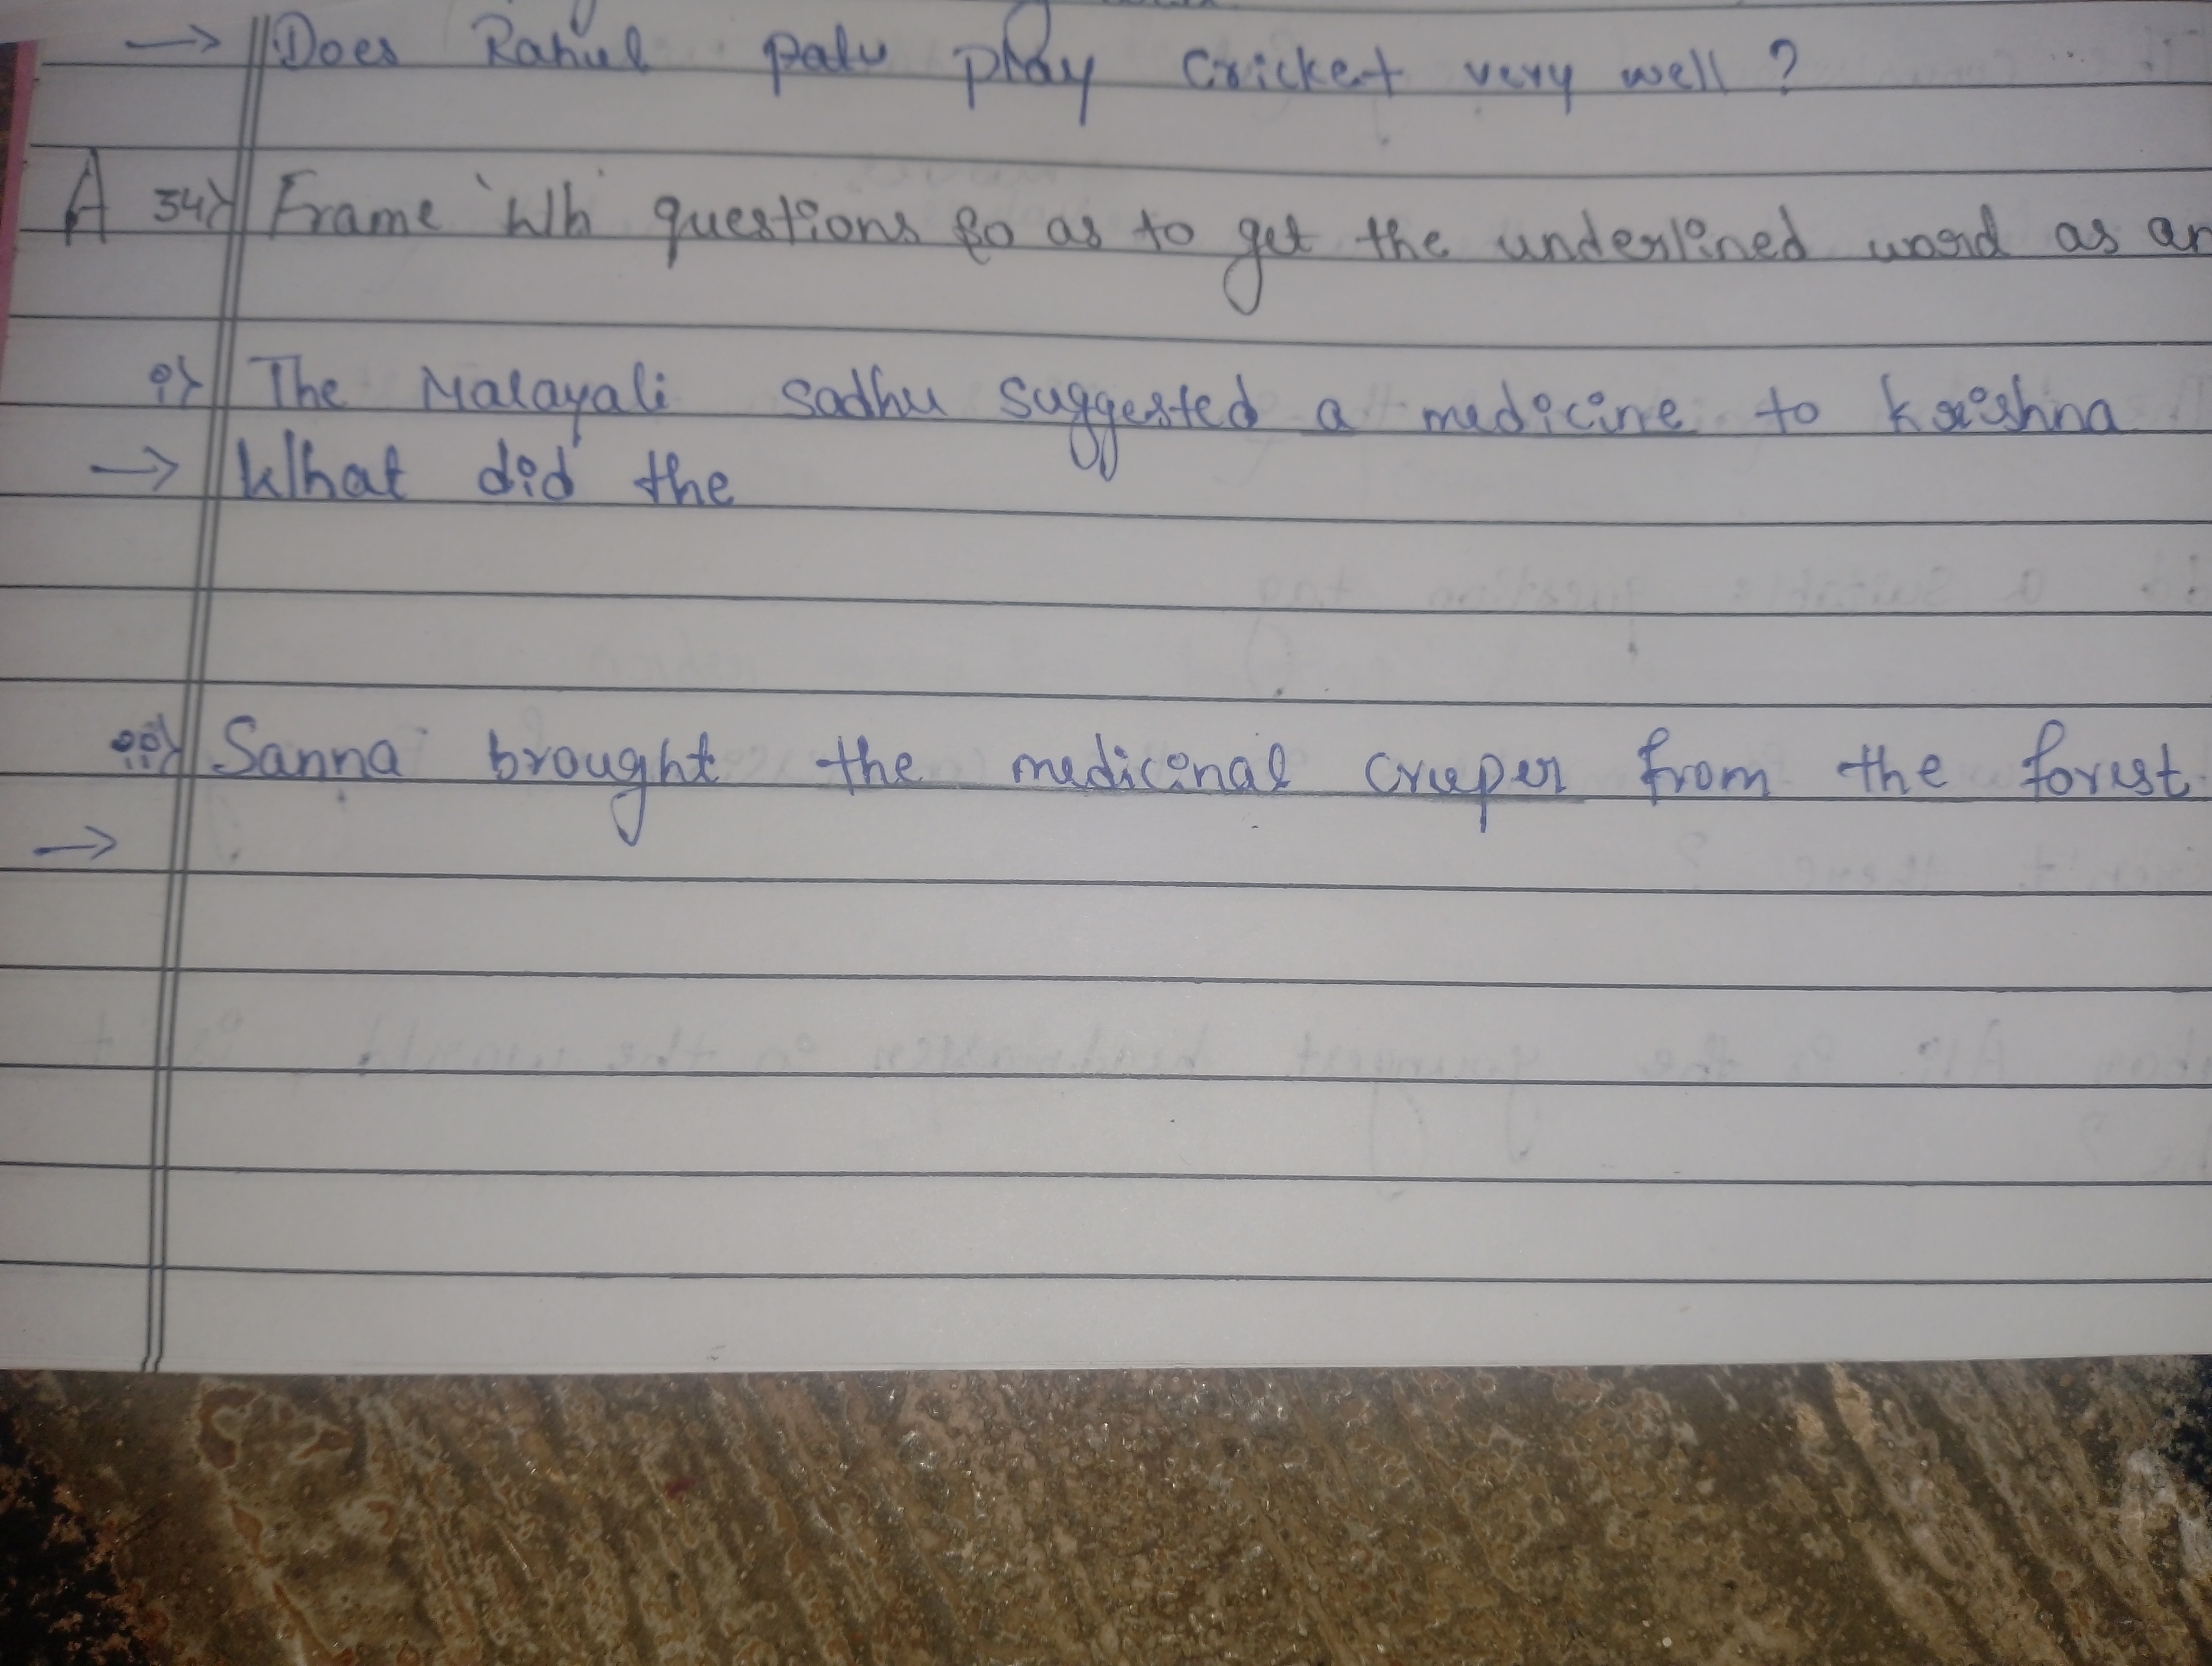 → Does Rahul play cricket very well ?
A 34) Frame 'Wh' questions so as to get the underlined word as an
i) The Malayali sadhu suggested a medicine to krishna
→ What did the
ii) Sanna brought the medicinal creeper from the forest.
→